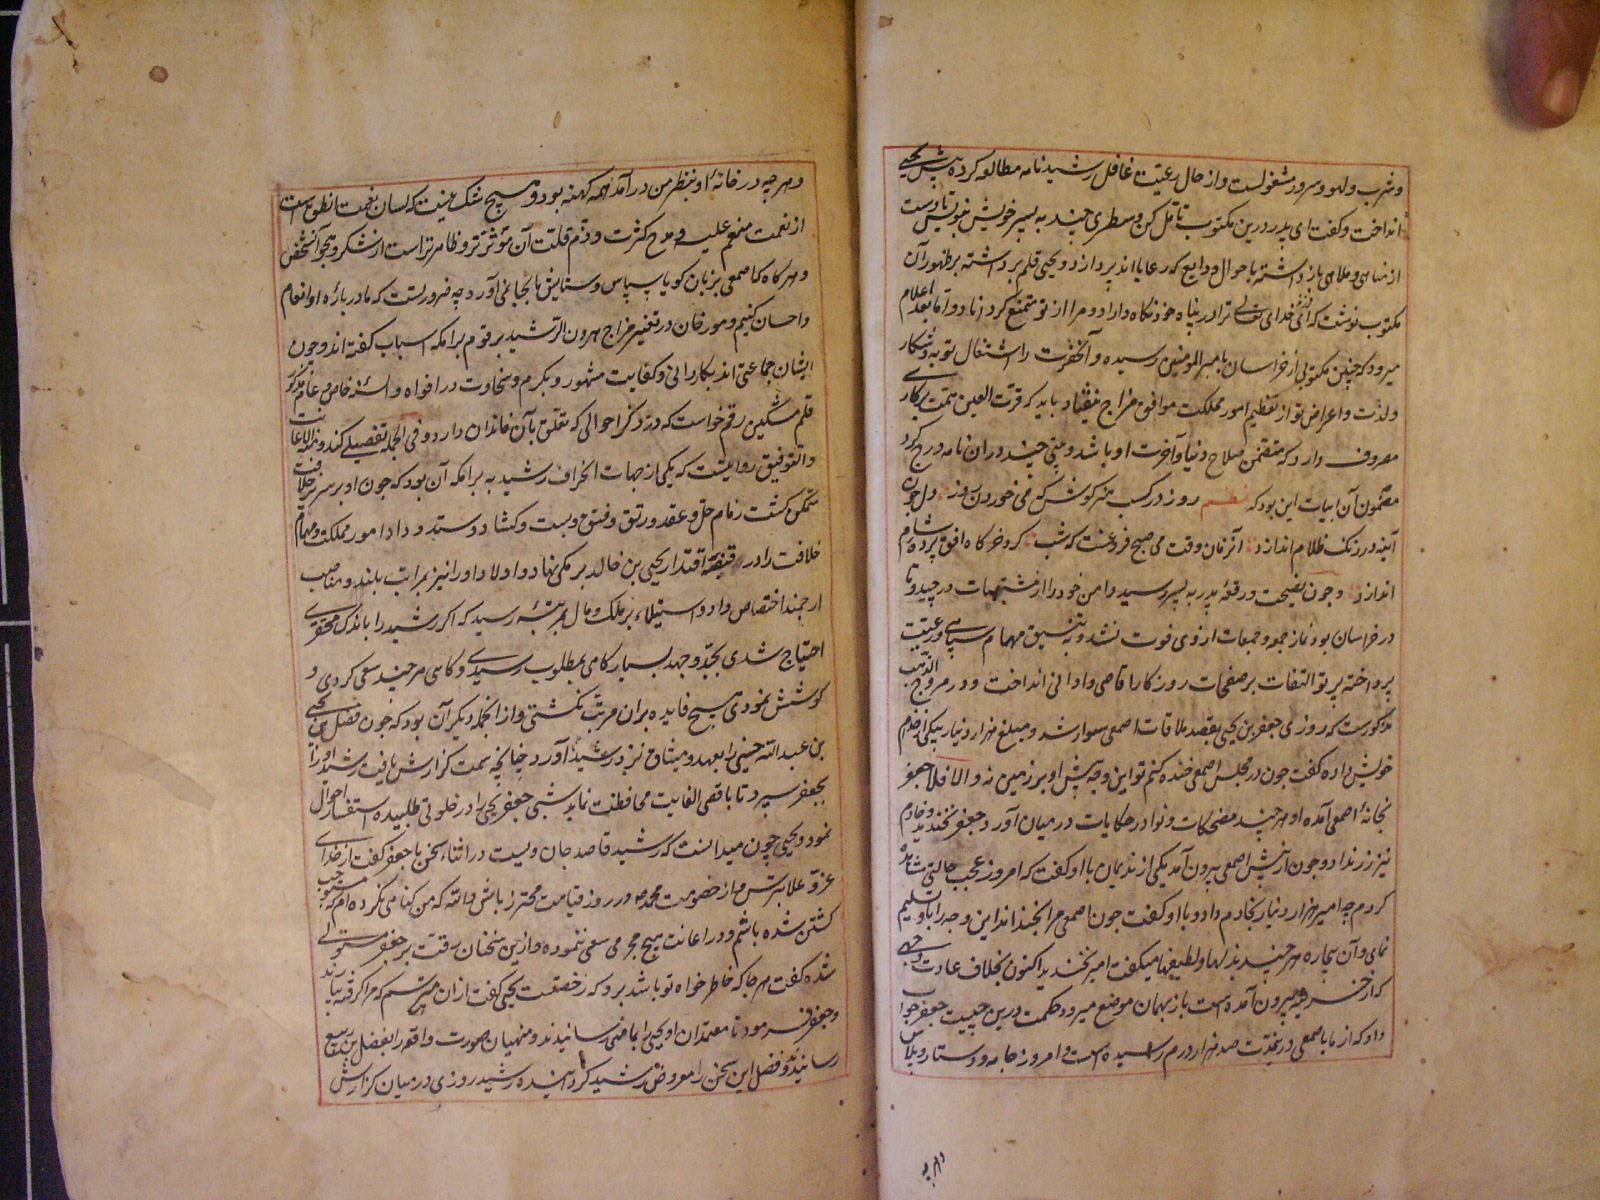 و شرب و لهو و سرور مشغولست و از حال رعیت غافل رشید نامه مطالعه کرده پیش یحیی
انداخت و گفت ای پدر درین مکتوب تامل کن و سطری چند به پسر خویش بنویس تا دست
از مناهی و ملاهی باز داشته باحوال ودایع که رعایا اند پردازد و یحیی قلم برداشته بر ظهر آن
مکتوب نوشت که ای خدای تعالی ترا در پناه خود نکاه دارد و مرا از تو متمتع کرداناد و اما بعد اعلام
میرود که چنین مکتوبی از خراسان بامیر المومنین رسیده و آنحضرت را اشتغال تو به شکار
و لذت و اعراض تو از تنظیم امور مملکت موافق مزاج نیفتاد باید که قرت العین همت بر کاری
مصروف دارد که متضمن صلاح دنیا و آخرت او باشد و بیتی چند دران نامه درج کرد
مضمون آن ابیات این بود که نظم روز در کسب هنر کوش که می خوردن روز دل چون
آینه در زنک ظلام اندازد آنزمان وقت می صبح فروغست که شب کرد خرکاه افق پرده شام
اندازد و چون نصیحت و رقعه پدر به پسر رسید دامن خود را از مشتهیات در چید و تا
در خراسان بود نماز جمعه و جمعات ازوی فوت نشد و به تنسیق مهمام سپاهی و رعیت
پرداخته پرتو التفات بر صفحات روزکار اقاصی و ادانی انداخت و در مروج الذهب
مذکورست که روزی جعفر بن یحیی بقصد ملاقات اصمعی سوار شد و مبلغ هزار دینار بیکی از خدم
خویش داده گفت چون در مجلس اصمعی خنده کنم تو این وجه پیش او بر زمین نه و الا فلا جعفر
بخانهٔ اصمعی آمده او هر چند مضحکات و نوادر حکایات در میان آورد جعفر نخندید و خادم
نیز زر نداد و چون از پیش اصمعی بیرون آمد یکی از ندیمان باو گفت که امروز عجب حالتی مشاهده
کردم چه امیر هزار دینار بخادم داد و با او گفت چون اصمعی مرا بخنداند این وجه را باو تسلیم
نمای و آن بیچاره هر چند بذلها و لطیفها میگفت امیر نخندید اکنون بخلاف عادت وجهی
که از خزینه بیرون آمده است باز بهمان موضع میرود حکمت درین چیست جعفر جواب
داد که از ما باصمعی در مدت صد هزار درم رسیده است و امروز جامه و دستار و پلاس
و هر چه
و هر چه در خانهٔ او بنظر من در آمد همه کهنه بود و هیچ شک نیست که لسان نعمت انطق است
از نعمت منعم علیه و مدح کثرت و ذم قلت آن مؤثرتر و ظاهرتر است از شکر و هجو آنشخص
و هر کاه که اصمعی بزبان کویا سپاس و ستایش ما بجا نمی آورد چه ضرورتست که ما در بارهٔ او انعام
و احسان کنیم و مورخان در تغییر مزاج هرون الرشید بر قوم برامکه اسباب کفته اند و چون
ایشان جماعتی اند بکاردانی و کفایت مشهور و بکرم و سخاوت در افواه و السنه خاص و عام مذکور
قلم مشکین رقم خواست که در ذکر احوالی که تعلق بآن خاندان دارد و فی الجمله تفصیلی کند و منه الاعانت
والتوفیق روایتست که یکی از جهات انحراف رشید به برامکه آن بود که چون او بر سریر خلافت
متمکن کشت زمام حل و عقد و رتق و فتق و بست و کشاد و ستد و داد امور مملکت و مهمام
خلافت را در قبضه اقتدار یحیی بن خالد برمکی نهاد و اولاد او را نیز بمراتب بلند و مناصب
ارجمند اختصاص داد و استیلاء بر ملک و مال بمرتبهٔ رسید که اکر رشید را باندک محقری
احتیاج شدی بجد و جهد بسیار کاهی بمطلوب رسیدی و کاهی هر چند سعی کردی و
کوشش نمودی هیچ فایده بران مرتب نکشتی و از انجمله دیکر آن بود که چون فضل بن یحیی
بن عبد الله حسینی را بعهد و میثاق نزد رشید آورد چنانچه سمت کزارش یافت رشید او را
بجعفر سپرد تا باقصی الغایت محافظت نماید شبی جعفر یحیی را در خلوتی طلبیده استفسار احوال
نمود و یحیی چون میدانست که رشید قاصد جان ویست در اثناء سخن با جعفر کفت از خدای
عز و علا بترس و از خصومت محمد ص در روز قیامت محترز باش والله که من کناهی نکرده ام که مستوجب
کشتن شده باشم و در اعانت هیچ مجرمی سعی ننموده و ازین سخنان رقت بر جعفر مستولی
شده کفت هر جا که خاطر خواه تو باشد برو که رخصتت یحیی کفت ازان میترسم که مرا کرفته بیارند
و جعفر فرمود تا معتمدان او یحیی را بمامنی رسانیدند و منهیان صورت واقعه را بفضل بن ربیع
رسانیدند و فضل این سخن را معروض رشید کردانیده رشید روزی در میان کزارش